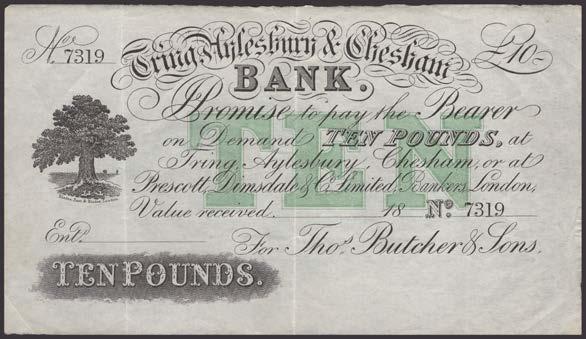 No. 7319
£10-
Tring, Aylesbury & Chesham
BANK.
Promise to pay the Bearer
on Demand TEN POUNDS, at
Tring, Aylesbury, Chesham, or at
Prescott, Dimsdale & C. Limited, Bankers, London,
Value received. 18 No. 7319
TEN
Ent.
For Thos. Butcher & Sons.
TEN POUNDS.